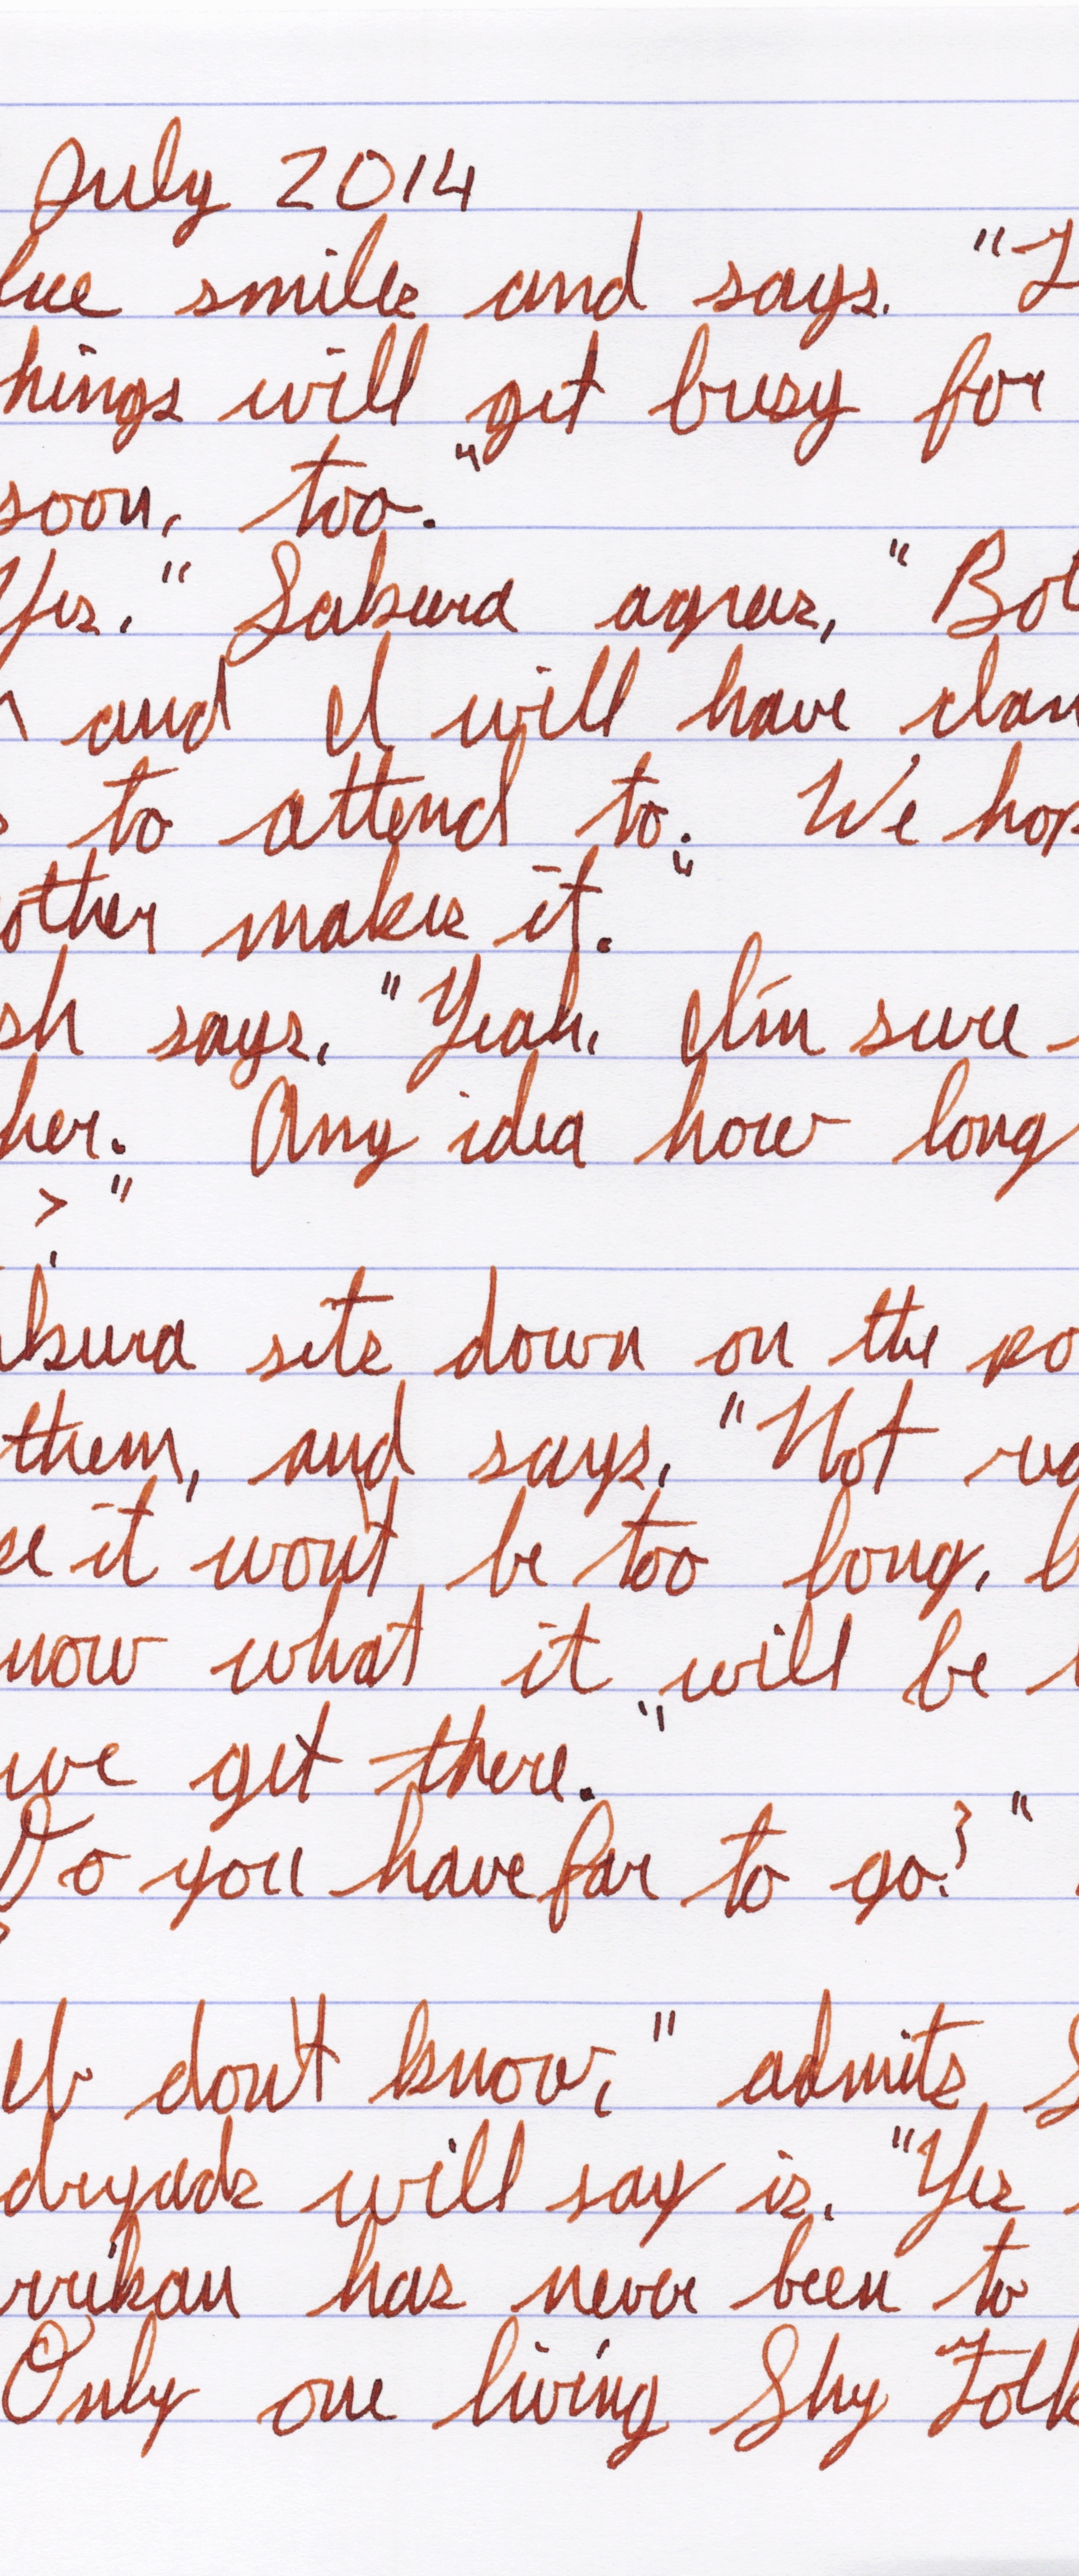 July 2014
lue smile and says. "I
hings will get busy for
soon, too."
Yes." Sakura agrees, "Bot
and I will have clan
to attend to. We hop
other makes it."
sh says, "Yeah, I'm sure
her. Any idea how long
?"
kura sits down on the po
them, and says, "Not
se it won't be too long, b
now what it will be
we get there."
Do you have far to go?"
I don't know," admits S
dryads will say is, "Yes
rrikan has never been to
Only one living Shy Folk